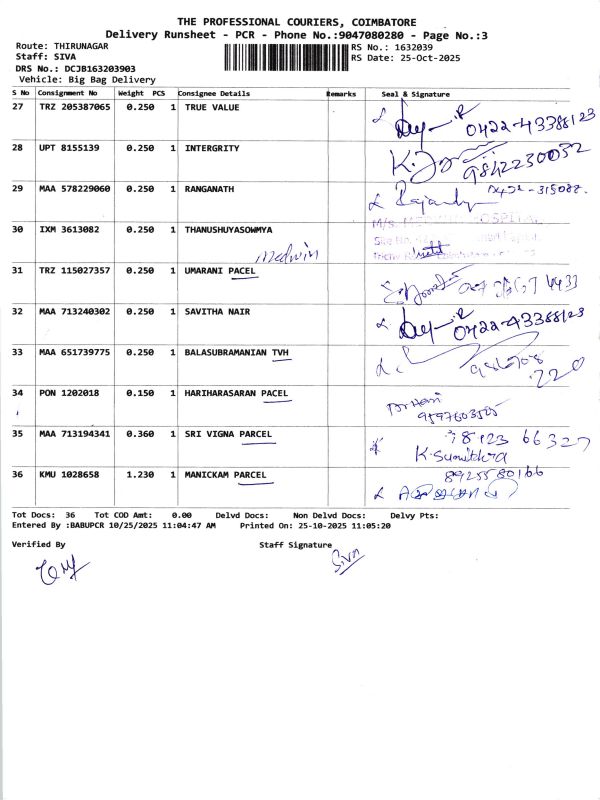 THE PROFESSIONAL COURIERS, COIMBATORE
Delivery Runsheet - PCR - Phone No.:9047080280 - Page No.:3
Route: THIRUNAGAR RS No.: 1632039
Staff: SIVA RS Date: 25-Oct-2025
DRS No.: DCJB163203903
Vehicle: Big Bag Delivery
S No Consignment No Weight PCS Consignee Details Remarks Seal & Signature
27 TRZ 205387065 0.250 1 TRUE VALUE
0422-43388123
28 UPT 8155139 0.250 1 INTERGRITY
9842230052
29 MAA 578229060 0.250 1 RANGANATH
30 IXM 3613082 0.250 1 THANUSHUYASOWMYA
Medwin
31 TRZ 115027357 0.250 1 UMARANI PACEL
32 MAA 713240302 0.250 1 SAVITHA NAIR
0422-43388123
33 MAA 651739775 0.250 1 BALASUBRAMANIAN TVH
34 PON 1202018 0.150 1 HARIHARASARAN PACEL
9597603505
35 MAA 713194341 0.360 1 SRI VIGNA PARCEL
78123 66327
K.Sumithra
36 KMU 1028658 1.230 1 MANICKAM PARCEL
8925580166
Tot Docs: 36 Tot COD Amt: 0.00 Delvd Docs: Non Delvd Docs: Delvy Pts:
Entered By :BABUPCR 10/25/2025 11:04:47 AM Printed On: 25-10-2025 11:05:20
Verified By Staff Signature
Siva